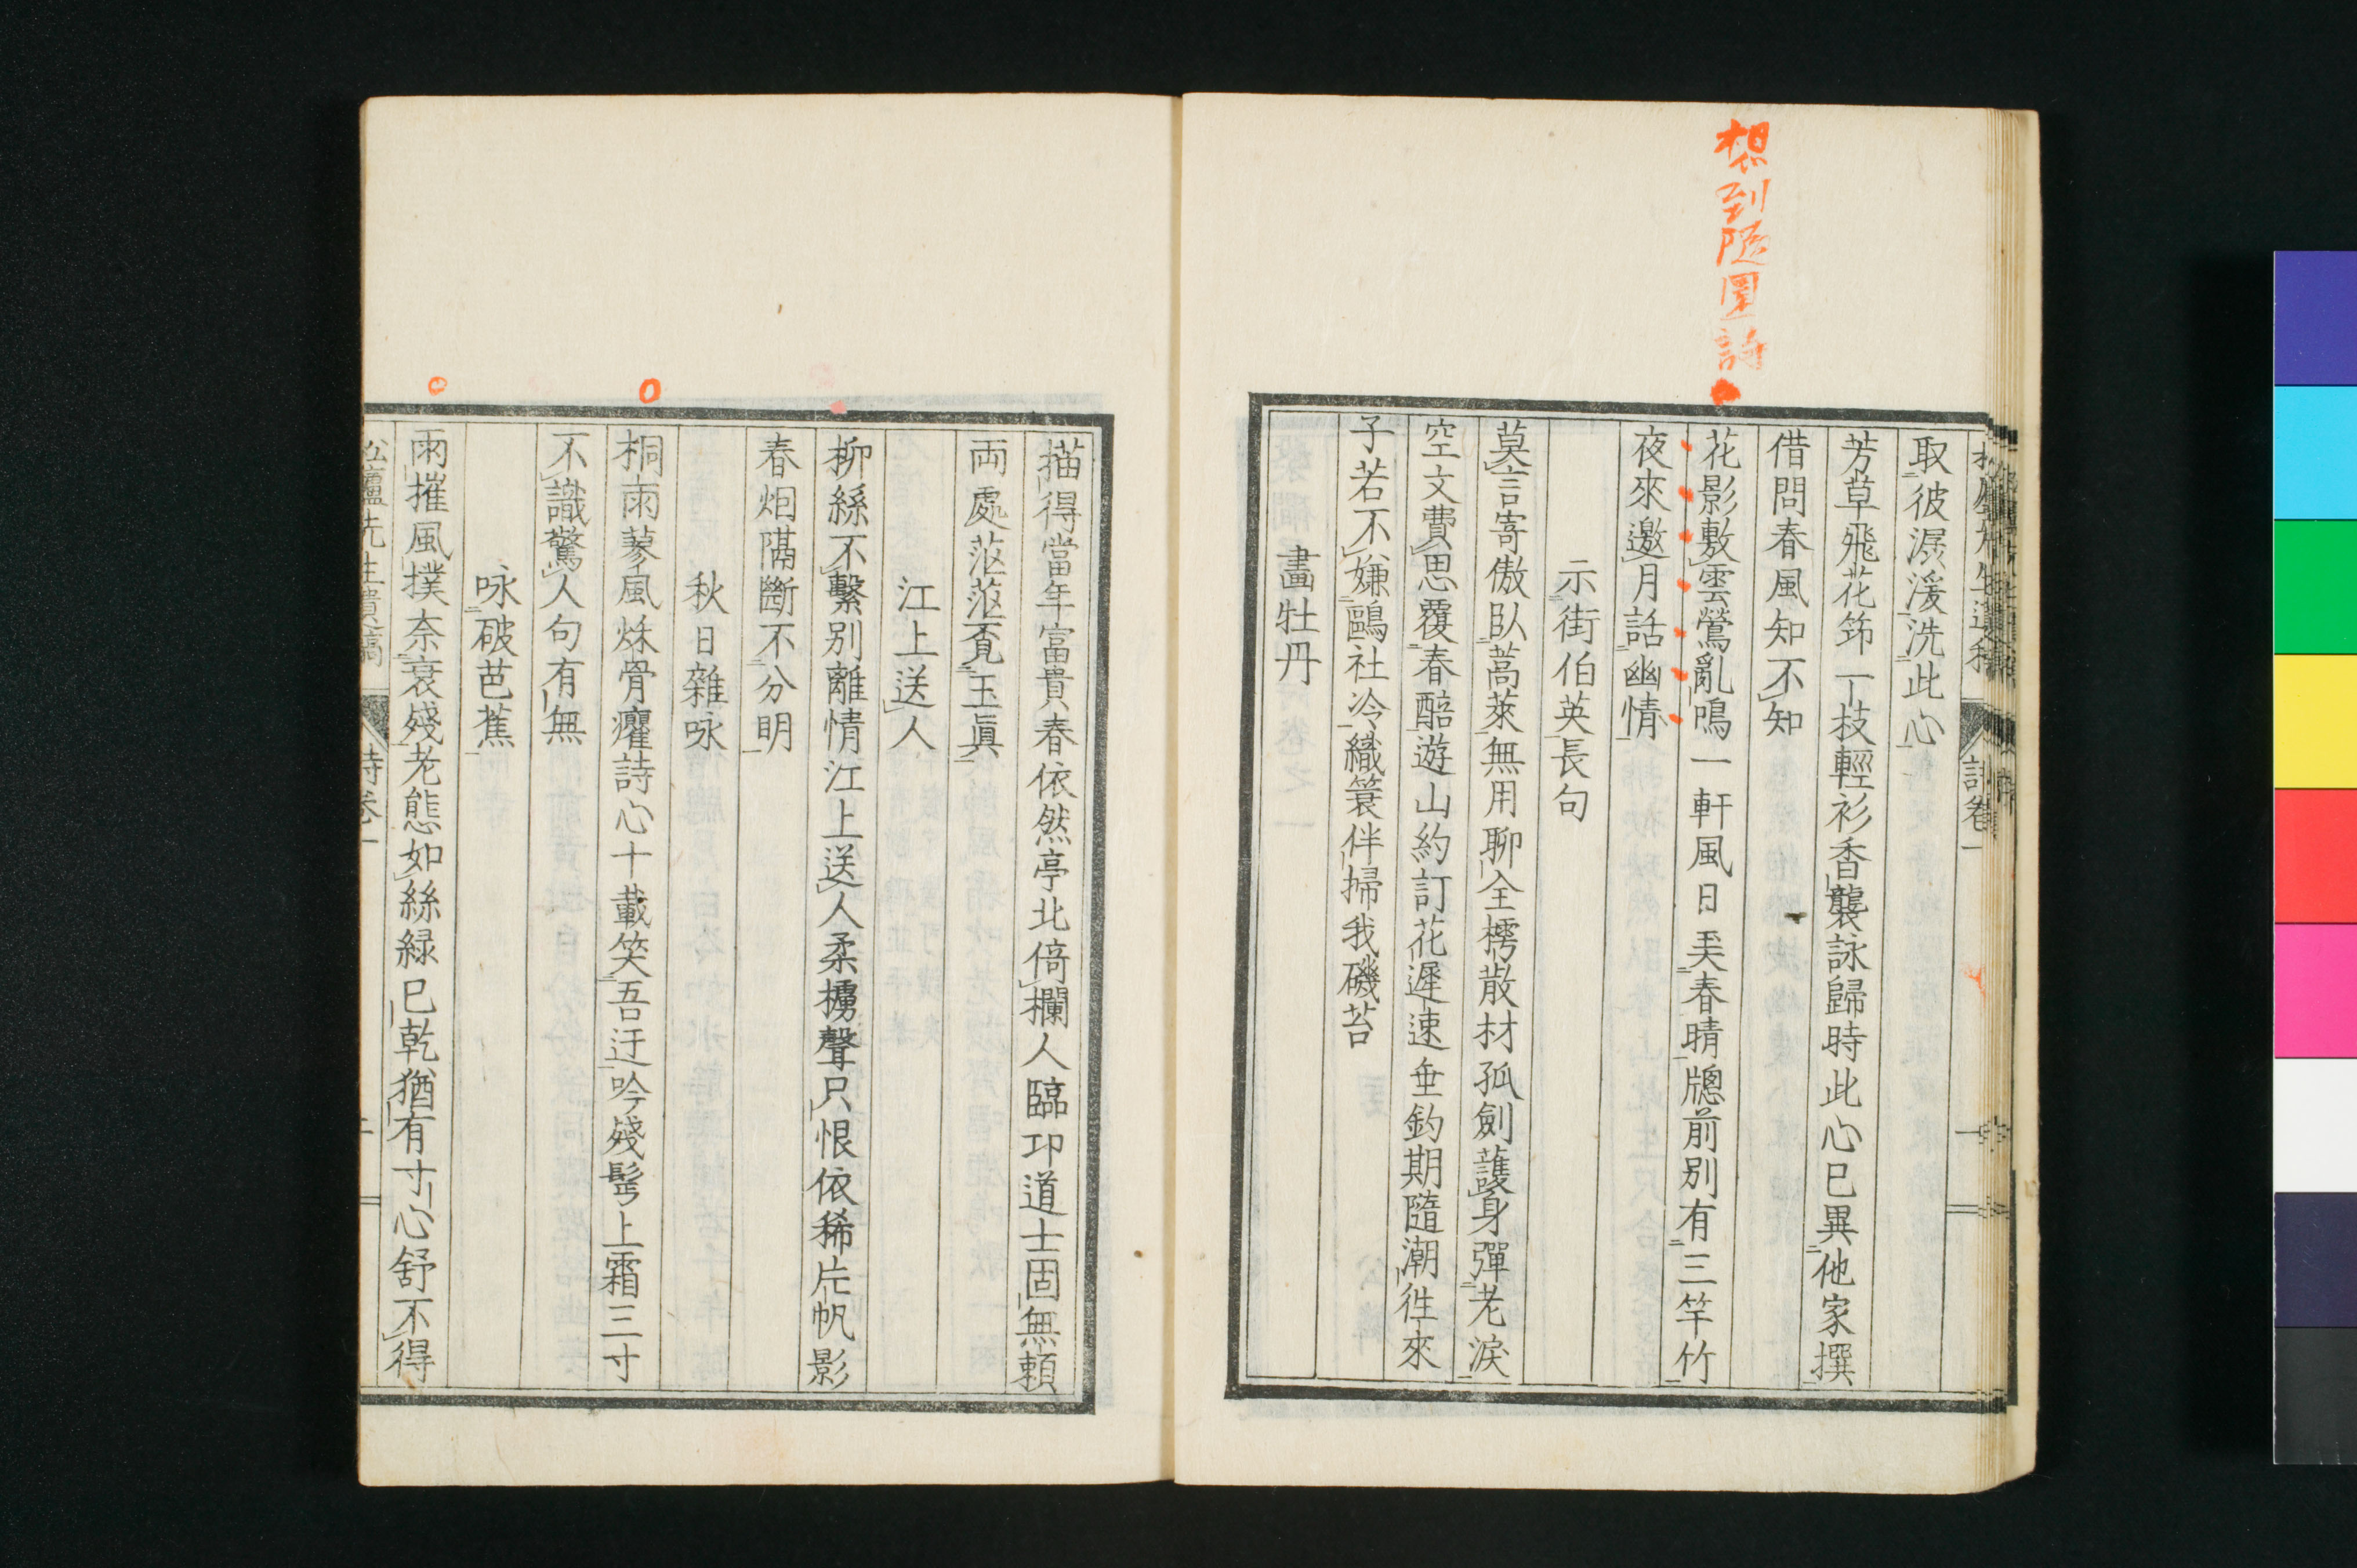 想到隨園詩
取彼潺湲洗此心
芳草飛花笻一枝輕衫香襲詠歸時此心已異他家撰
借問春風知不知
花影敷雲鶯亂鳴一軒風日美春晴牕前別有三竿竹
夜來邀月話幽情
示街伯英長句
莫言寄傲臥蒿萊無用聊全樗散材孤劍護身彈老淚
空文費思覆春醅遊山約訂花遲速垂釣期隨潮徃來
子若不嫌鷗社冷織簑伴掃我磯苔
畫牡丹
描得當年富貴春依然亭北倚欄人臨卭道士固無頼
両處茫茫覔玉眞
江上送人
柳絲不繫別離情江上送人柔櫓聲只恨依稀片帆影
春烟隔斷不分明
秋日雜咏
桐雨蓼風烁骨癯詩心十載笑吾迂吟殘髩上霜三寸
不識驚人句有無
咏破芭蕉
雨摧風撲奈衰殘老態如絲緑已乾猶有寸心舒不得
松廬先生遺稿 詩卷一